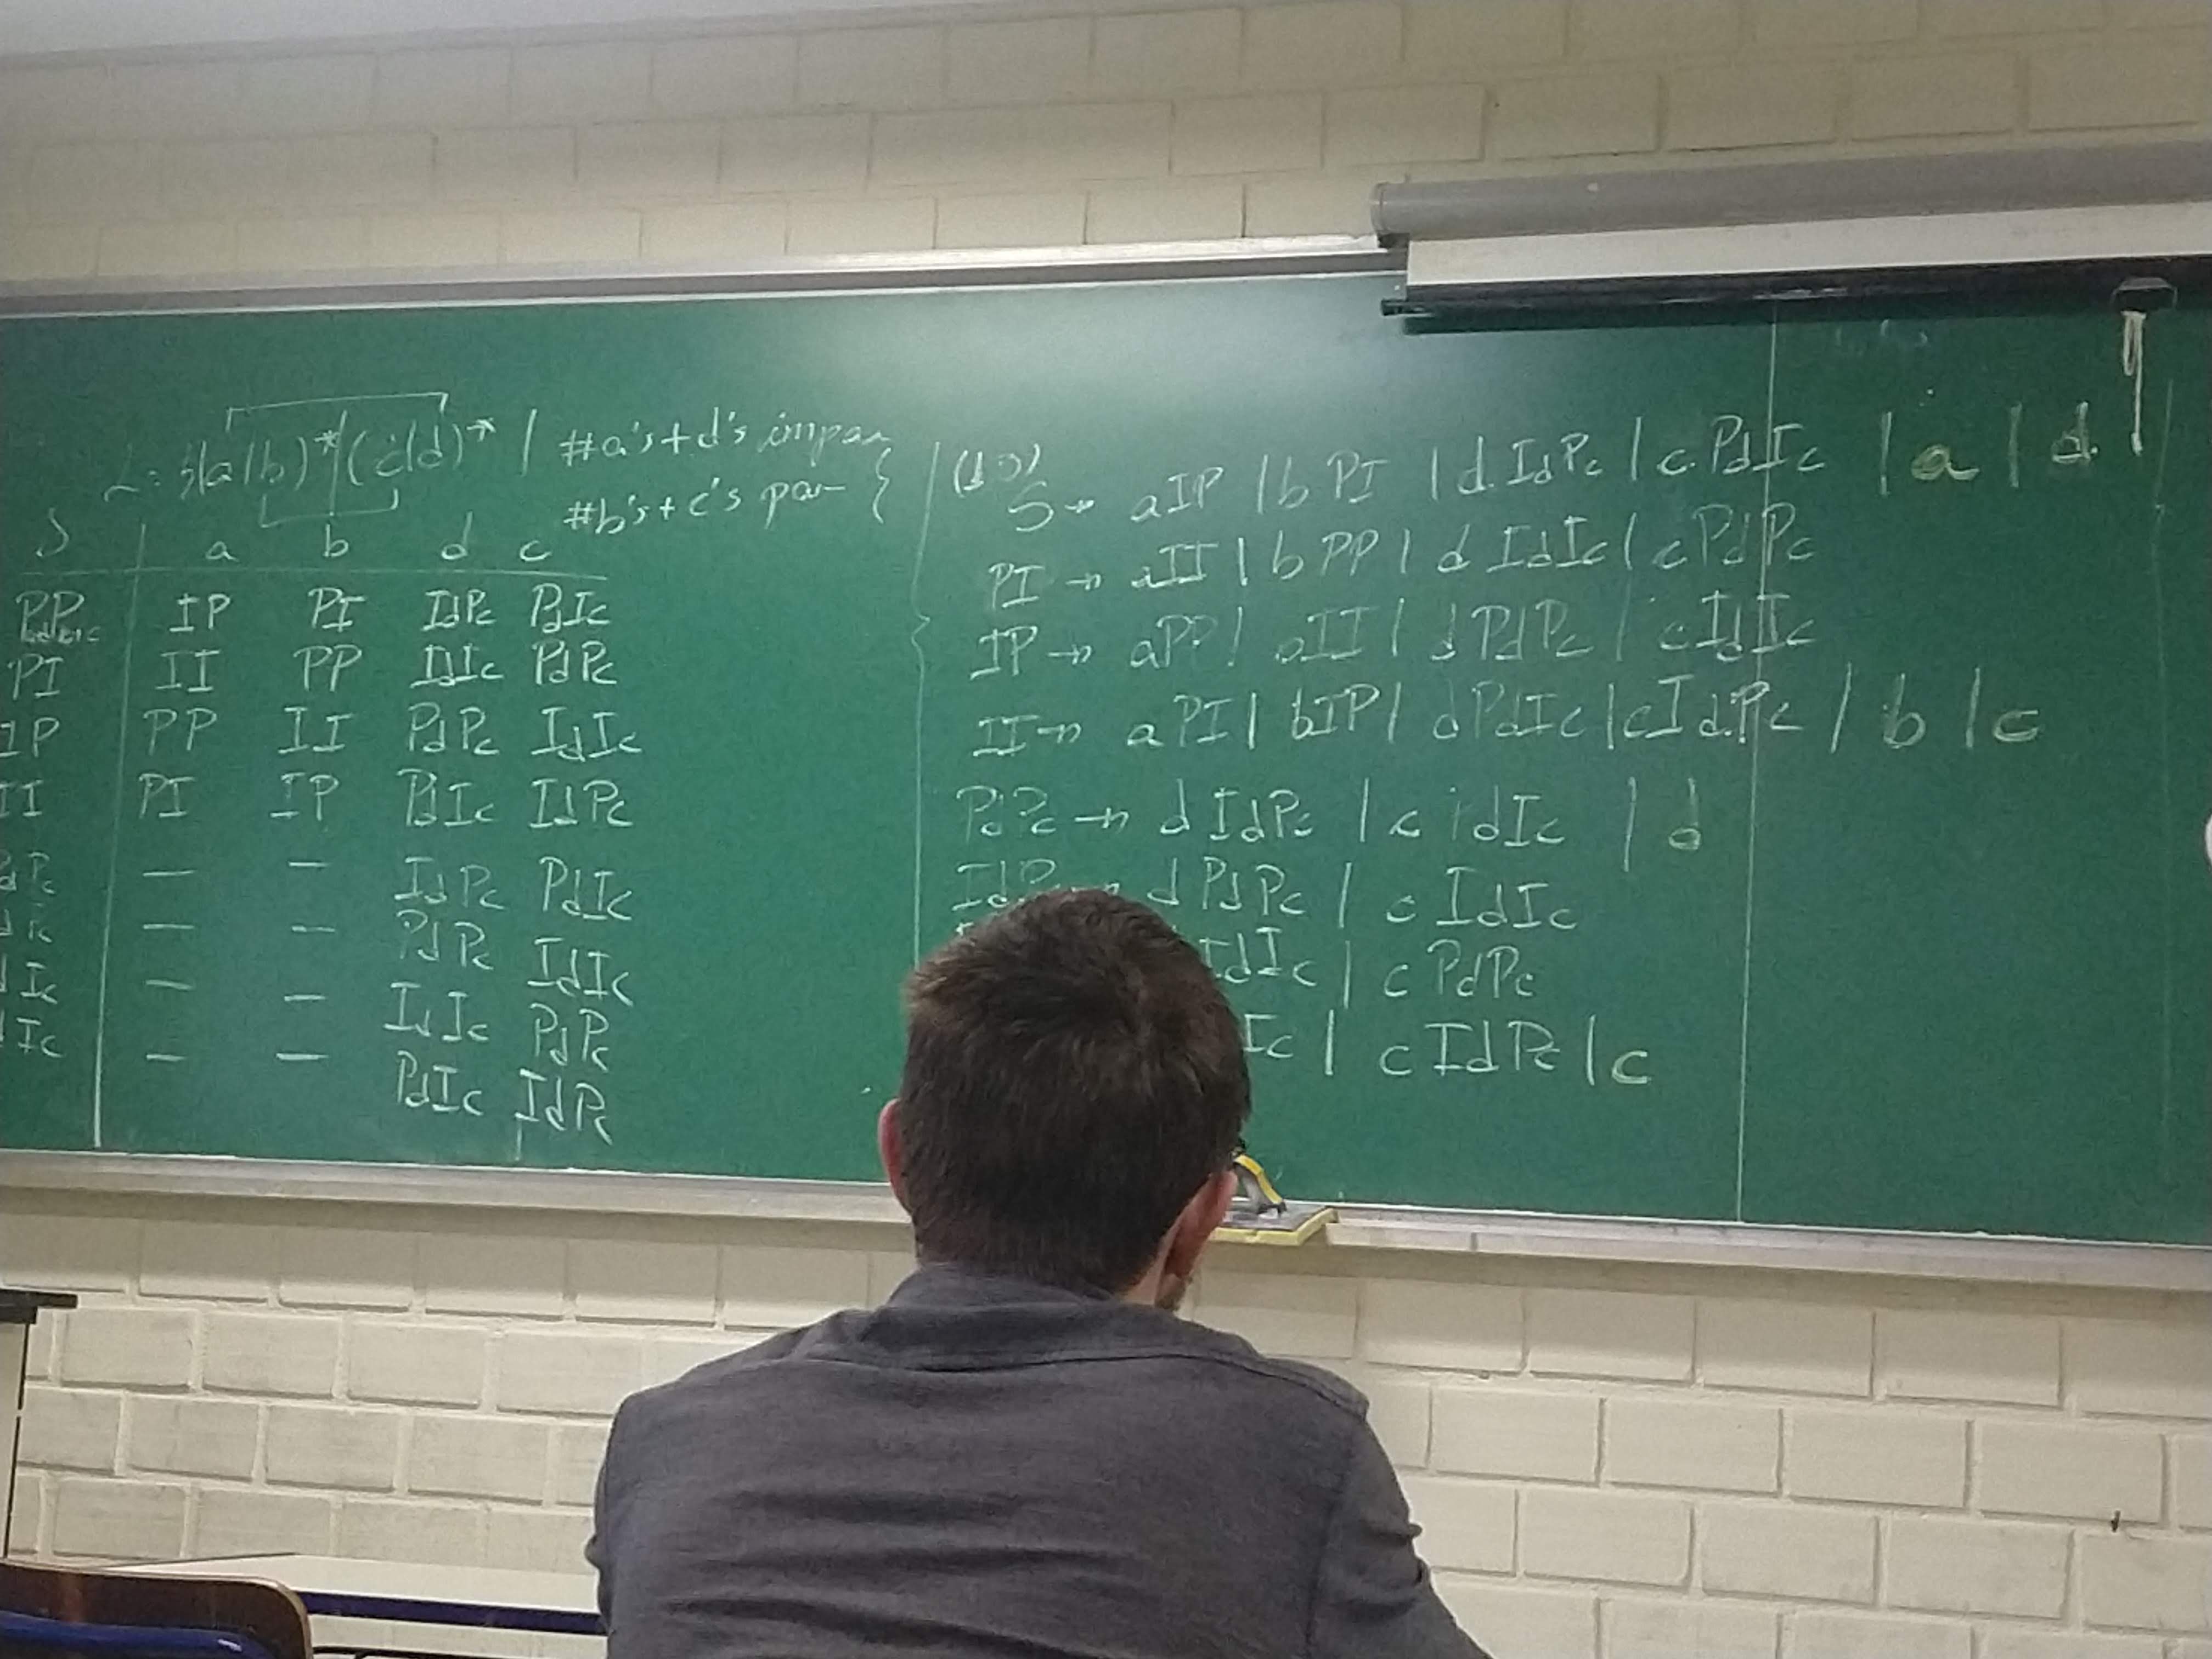 L: {(a|b)*(c|d)* | #a's+d's impar
#b's+c's par }
δ | a b d c
IP PI IdPc PdIc
PI II PP IdIc PdPc
IP PP II PdPc IdIc
II PI IP PdIc IdPc
dPc — — IdPc PdIc
dPc — — PdPc IdIc
dIc — — IdIc PdPc
dIc — — PdIc IdPc
S → aIP | bPI | dIdPc | cPdIc | a | d
PI → aII | bPP | dIdIc | cPdPc
IP → aPP | aII | dPdPc | cIdIc
II → aPI | bIP | dPdIc | cIdPc | b | c
PdPc → dIdPc | c dIc | d
IdPc dPdPc | cIdIc
IdIc | cPdPc
Ic | cIdPc | c